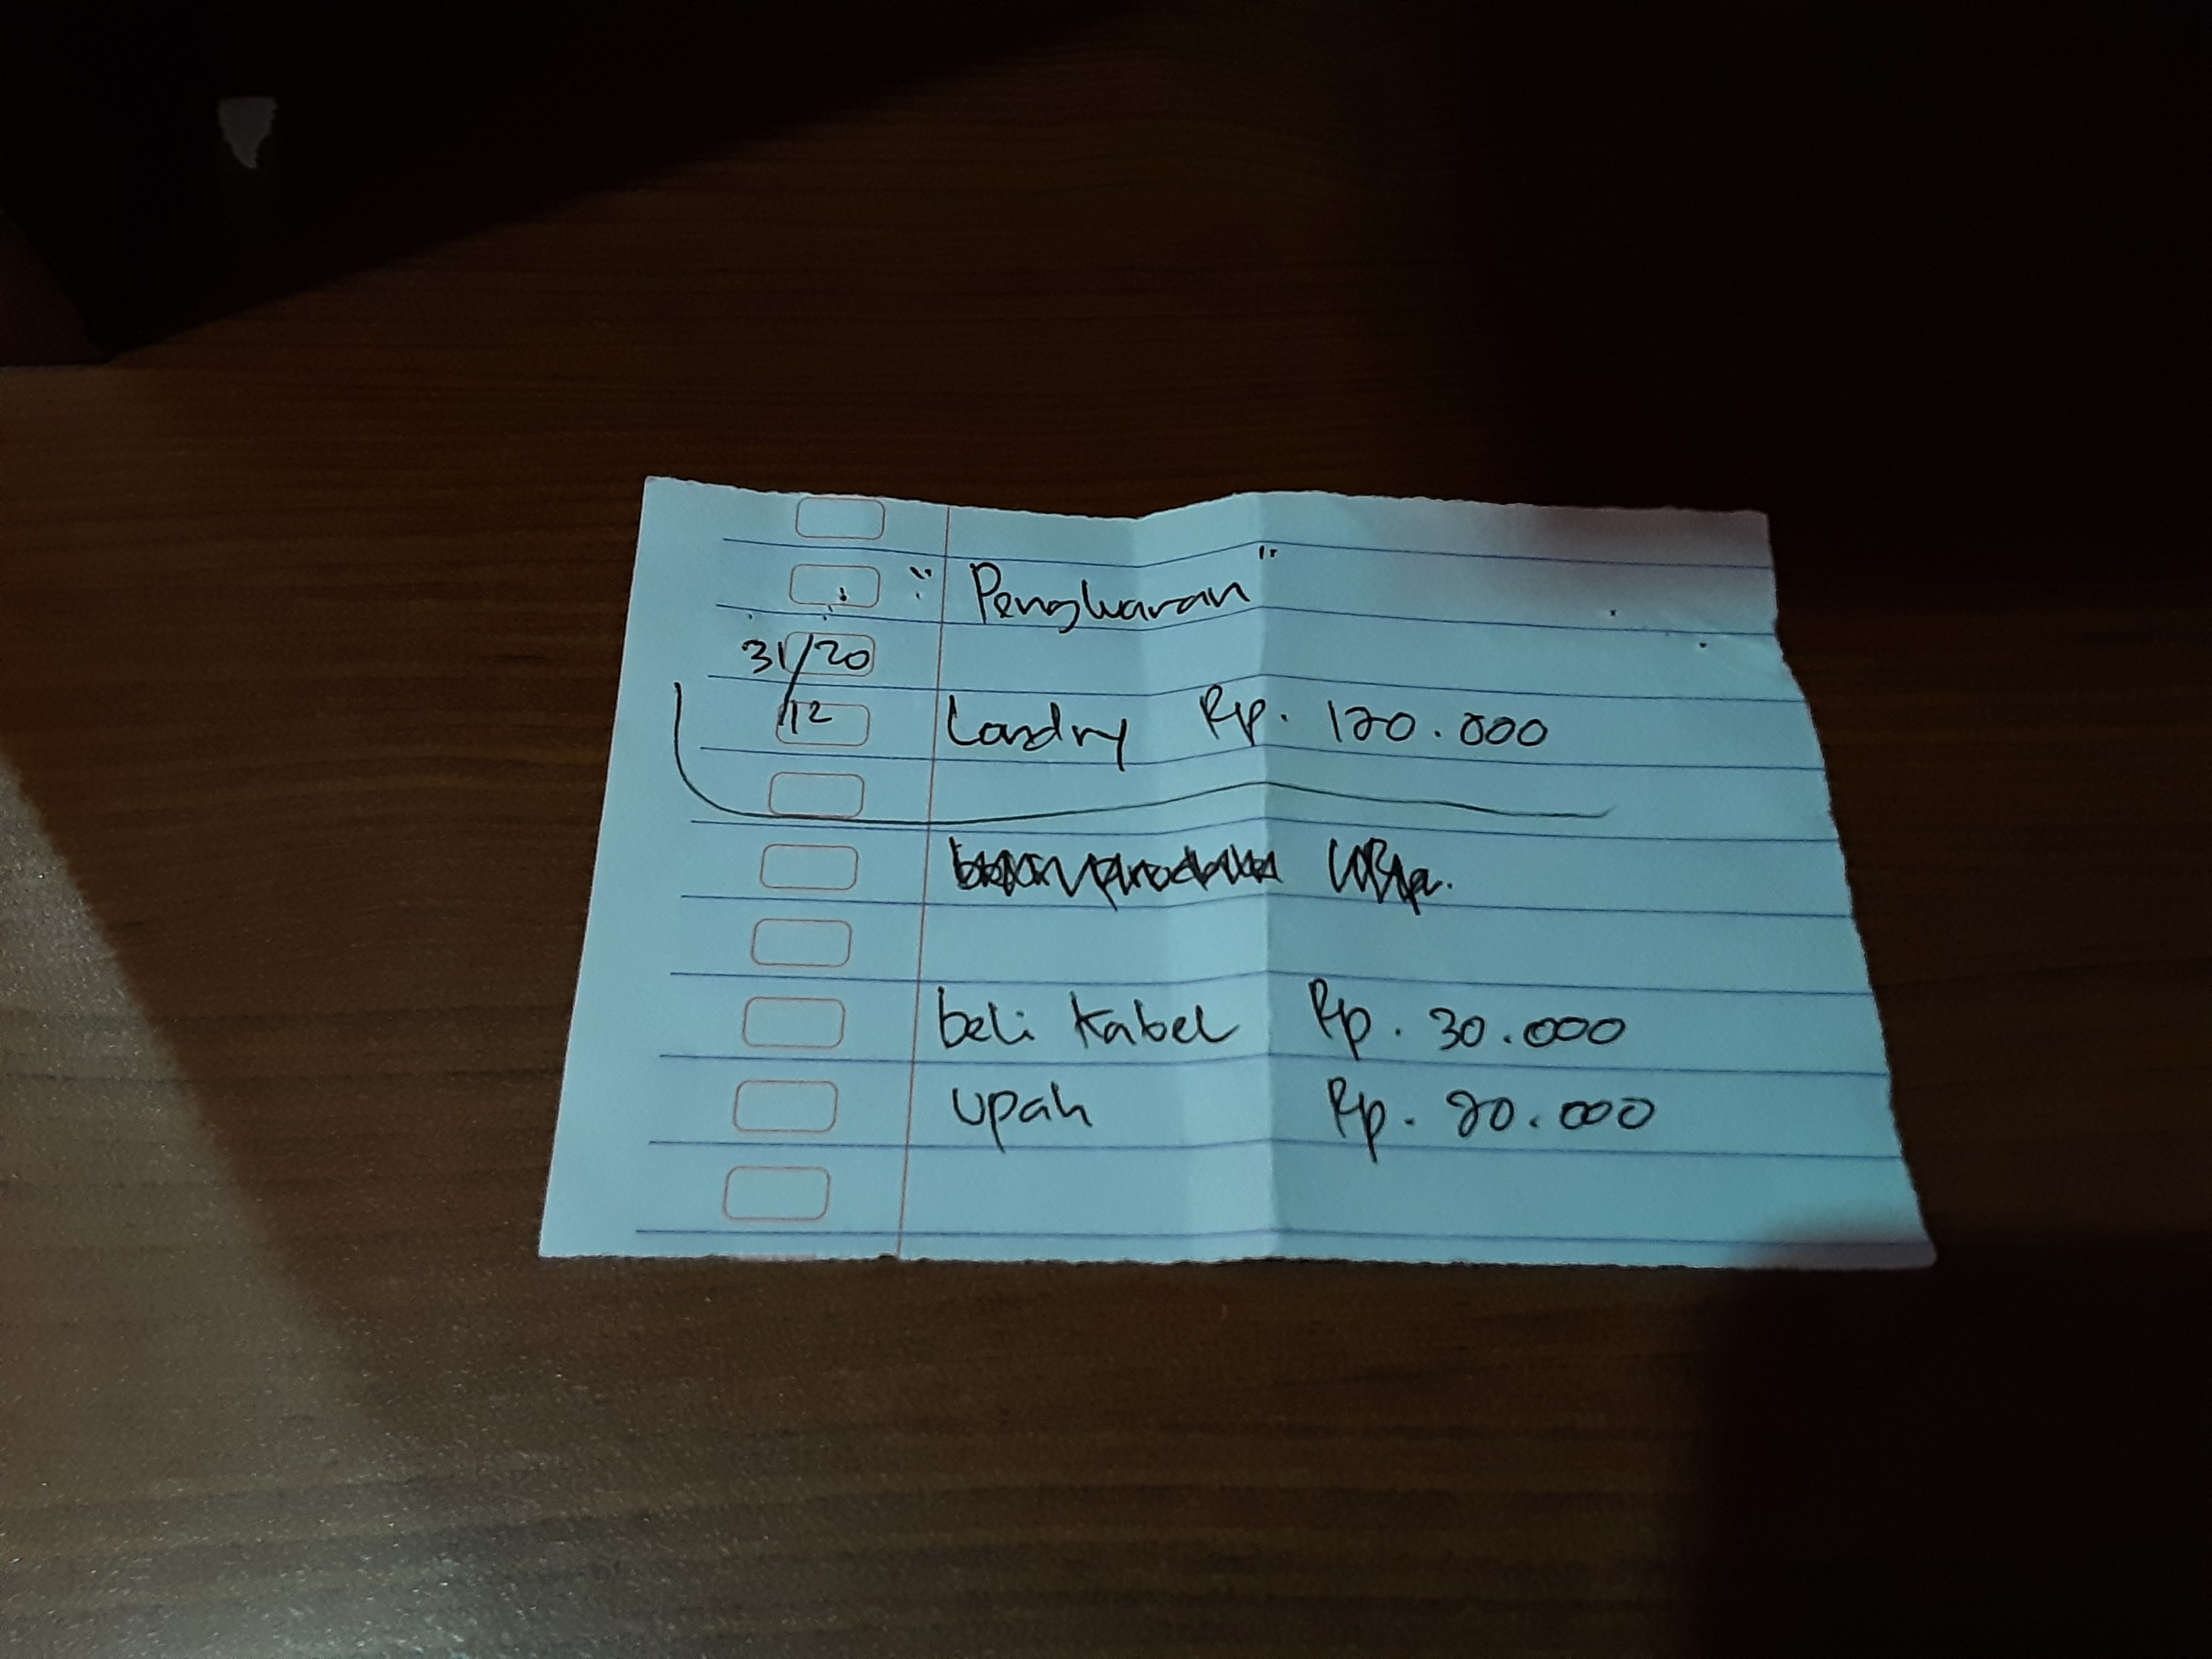 "Pengluaran"
31/20
/12 Landry Rp. 120.000
beli kabel Rp. 30.000
upah Rp. 20.000